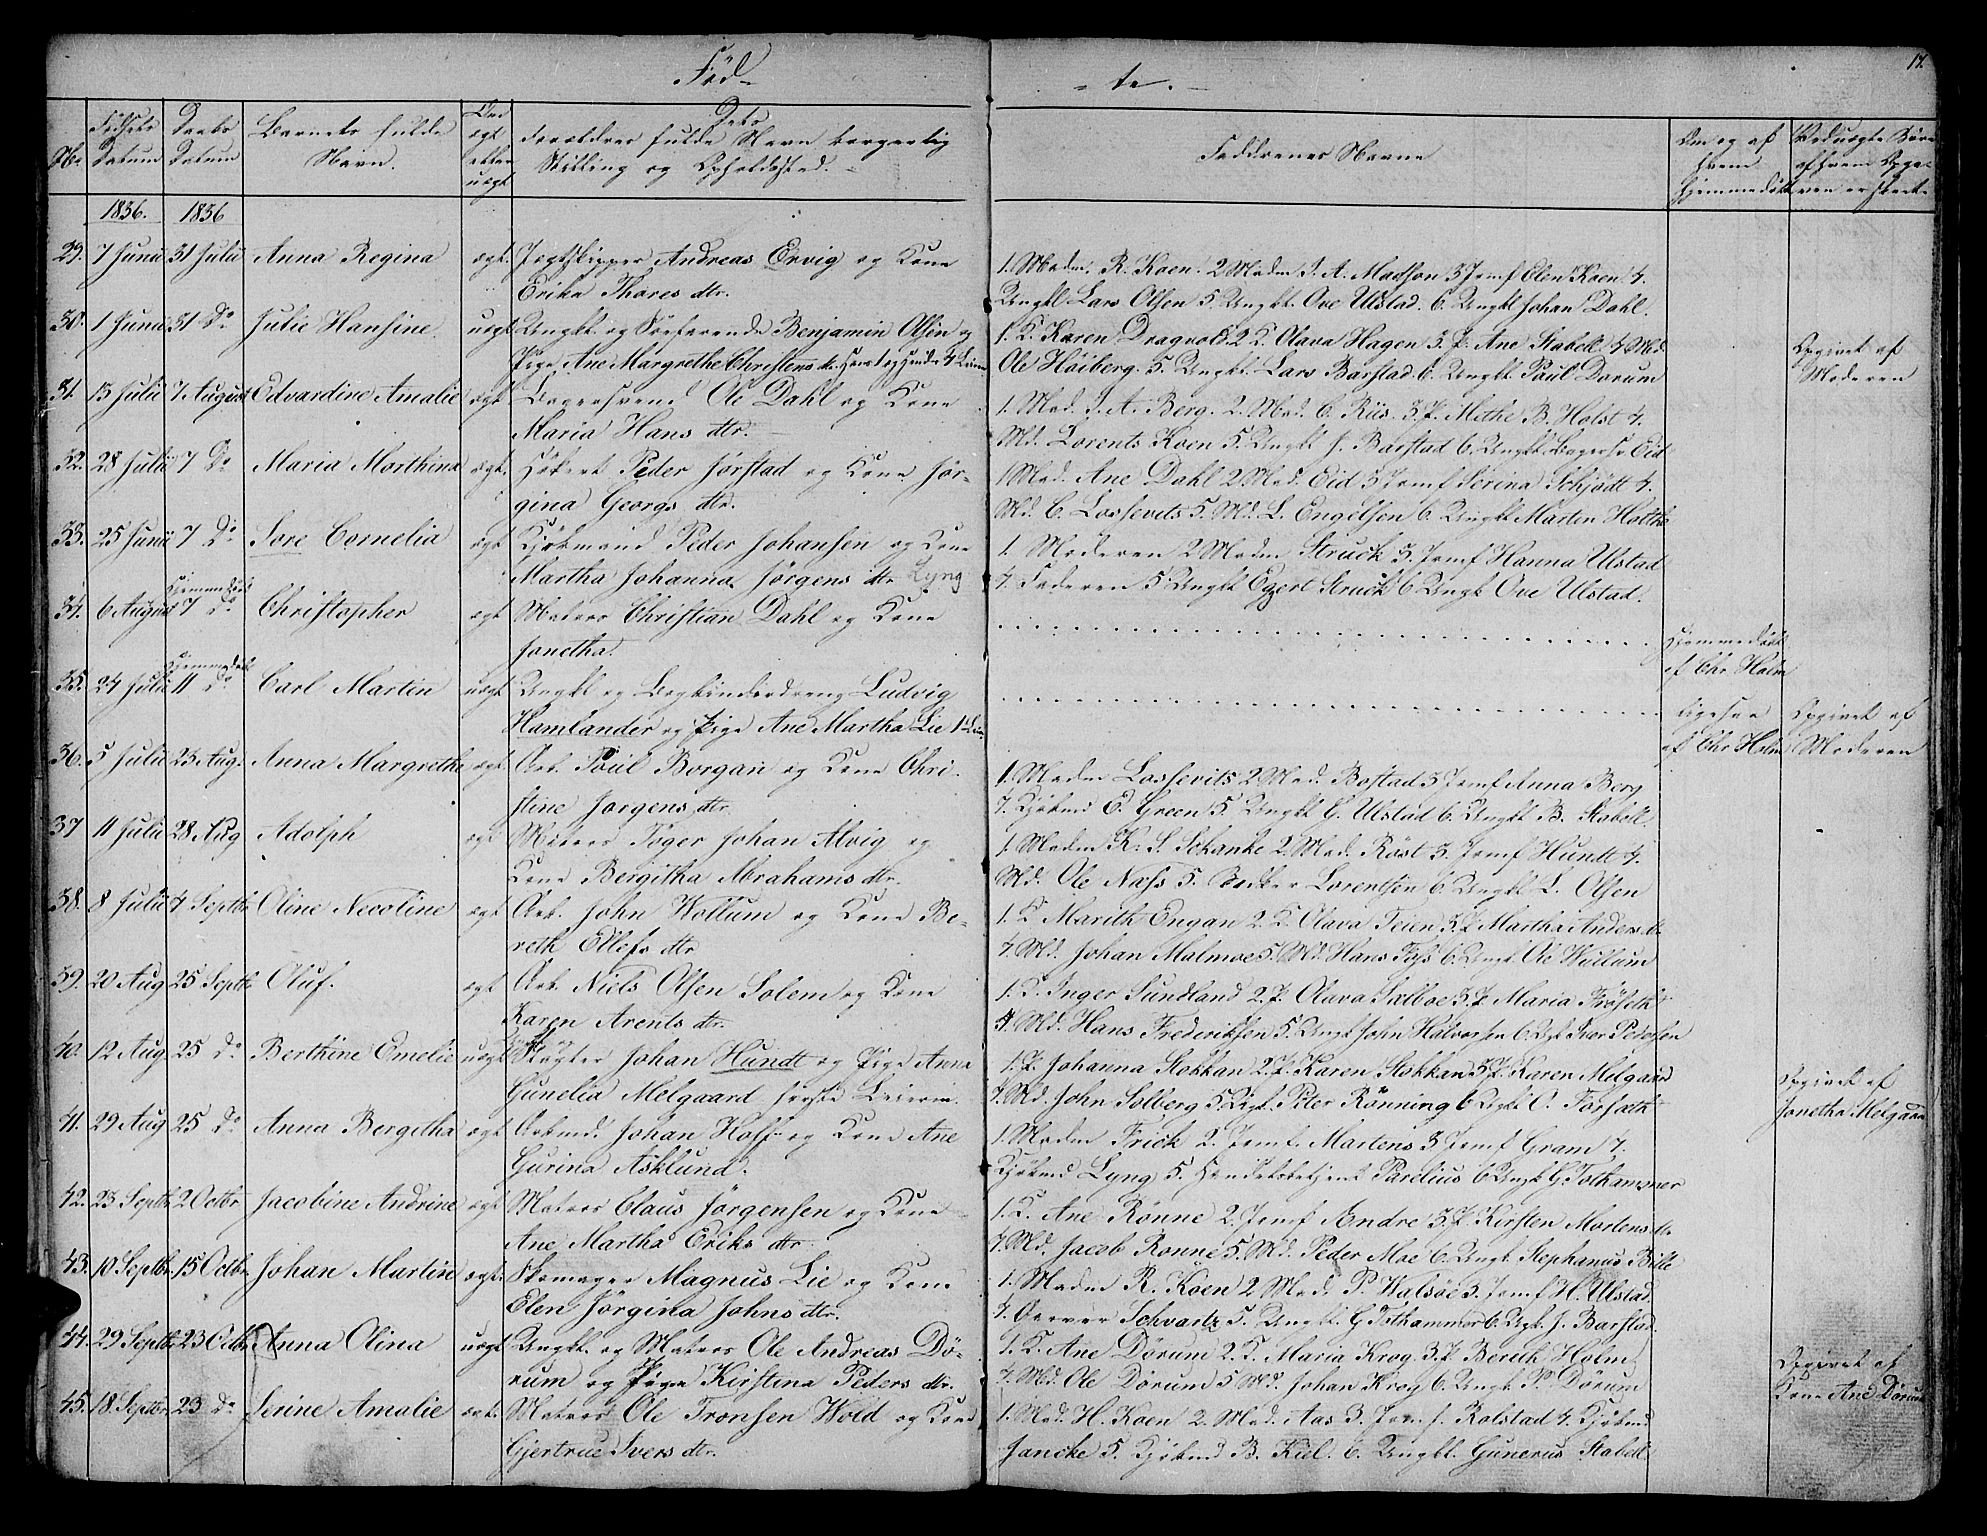 Fød-
-te.-
17.
No.
Fødsels Datum
Daabs Datum
Barnets fulde Navn.
Om ægt eller uægt
Dets Forældres fulde Navn borgerlig Stilling og Opholdssted.
Faddrenes Navne
Om og af hvem hjemmedøbt
1836. 1836
29. 7 Juni 31 Julii Anna Regina ægt. Jægtskipper Andreas Ervig og Kone
Erika Thores dtr.
1. Madm. R. Koen. 2 Madm J. A. Madson 3 Jomf Elen Koen 4.
Ungkl Lars Olsen 5. Ungkl. Ove Ulstad. 6. Ungkl Johan Dahl.
30. 1 Junii 31 Do Julie Hansine. uægt Ungkl. og Søefarende Benjamin Olsen og
Pige Ane Margrethe Christens dtr.
1. K. Karen Dragvold 2 K. Olava Hagen 3. P. Ane Stabell 4 Md.
Ole Höiberg. 5 Ungkl. Lars Barstad. 6. Ungkl Paul Dorum
Opgivet af
Moderen
31. 13 Julii 7 August Edvardine Amalie ægt Bagersvend Ole Dahl og Kone
Maria Hans dtr.
1. Mad. J. A. Berg. 2. Mad. C. Riis. 3 P. Methe B. Holst 4.
Md. Lorents Koen 5. Ungkl J. Barstad 6. Ungkl. Bagersv Eid
32. 28 Julii 7 Do Maria Morthina ægt. Høker Peder Jørstad og Kone Jør-
gina Georgs dtr.
1 Mad. Ane Dahl 2 Mad. Eid 3 Jomf Serina Schjødt 4.
Md. C. Lossevits 5. Md. L. Engelsen 6. Ungkl Marten Holthe
33. 25 Junii 7 Do Sore Cornelia ægt Kjøbmand Peder Johansen og Kone
Martha Johanna Jørgens dtr Lyng
1. Moderen 2 Madm Struck 3. Jomf Hanna Ulstad
4. Faderen 5 Ungkl Egert Struck 6 Ungk Ove Ulstad.
Hjemmedøbt
34. 6 August 7 Do Christopher ægt Matros Christian Dahl og Kone
Jonetha.
Hjemmedøbt
af Chr. Holm
Hjemmedøbt
35. 24 Julii 11 Do Carl Martin uægt Ungkl og Bogbinderdreng Ludvig
Hamlander og Pige Ane Martha Lie
Ligesaa
af Chr. Holm
Opgivet af
Moderen
36. 5 Julii 23 Aug. Anna Margrethe ægt Arb. Poul Borgan og Kone Chri-
stine Jorgens dtr.
1. Madm Lossevits 2. Mad. Bostad 3 Jomf Anna Berg
4. Kjøbmd E. Green 5. Ungkl G. Ulstad 6. Ungkl B. Stabell.
37 11 Julii 28 Aug Adolph ægt Matros Töger Johan Alvig og
Kone Bergitha Abrahams dtr.
1. Madm K. S. Schanke 2. Mad. Röst 3. Jomf Hundt 4.
Md. Ole Næss 5. Bødker Lorentsen 6. Ungkl L. Olsen
38. 8 Julii 4 Septbr Oline Necoline ægt Arb. John Wollum og Kone Be-
reth Ellefs dtr
1. K Marith Engan 2. K Olava Teien 3. P Martha Anders dr
4. Md. Johan Malmoe 5. Md. Hans Foss 6. Ungk. Ole Wullum
39. 20 Aug 25 Septbr Oluf. ægt Arb. Niels Olsen Solem og Kone
Karen Arents dtr.
1. K. Inger Sundland 2. P. Olava Selboe 3. P Maria Fröseth
4. Md. Hans Frederiksen 5. Ungk John Halvorsen 6. Ungk Iver Pedersen
40. 12 Aug 25 Do Berthine Emelie uægt Slagter Johan Hundt og Pige Anna
Gunelia Melgaard første Leierm.
1. P. Johanna Stokkan 2. P. Karen Stokkan 3. P. Karen Melgaard
4. Md. John Solberg 5. Ungk. Peter Rönning 6 Ungkl. O. Forsæth
Opgivet af
Jonetha Melgaard
41. 29 Aug 25 Do Anna Bergitha ægt Arbmd. Johan Holf og Kone Ane
Gurina Asklund.
1. Madm Frick 2. Jomf. Martens 3 Jomf Gram 4.
Kjøbmd Lyng 5. Handelsbetjent Parelius 6 Ungk G. Tothammer
42. 23 Septbr 2 Octbr Jacobine Andrine ægt Matros Claus Jørgensen og Kone
Ane Martha Eriks dtr.
1. K. Ane Rønne 2. Jomf Andre 3. P. Kirsten Mortens dr
4. Md. Jacob Ronne 5. Md. Peder Moe 6. Ungk Stephanus Bille
43. 10 Septbr 15 Octbr Johan Martin ægt. Skomager Magnus Lie og Kone
Elen Jørgina Johns dtr.
1. Madm R. Köen 2 Mad. P. Walsöe 3. Jomf H. Ulstad.
4. Garver Schvartz 5. Ungkl. G Tothammer 6. Ungk. J. Barstad.
44. 29 Septbr 23 Octbr Anna Olina uægt Ungkl. og Matros Ole Andreas Dö-
rum og Pige Kirstina Peders dtr.
1. K. Ane Dörum 2. K. Maria Krog. 3. P Berith Holm
4. Md. Ole Dörum 5 Md. Johan Krog 6. Ungk P. Dörum
Opgivet af
Kone Ane Dörum
45. 18 Septbr 23 Do Serine Amalie ægt. Matros Ole Tronsen Wold og Kone
Gjertrue Ivers dtr.
1. Mad. H. Koen 2. Mad. Aas 3. Jomf. Rolstad 4. Kjøbmd
Jancke 5. Kjøbmd B. Kiel. 6. Ungkl. Gunerus Stabell.